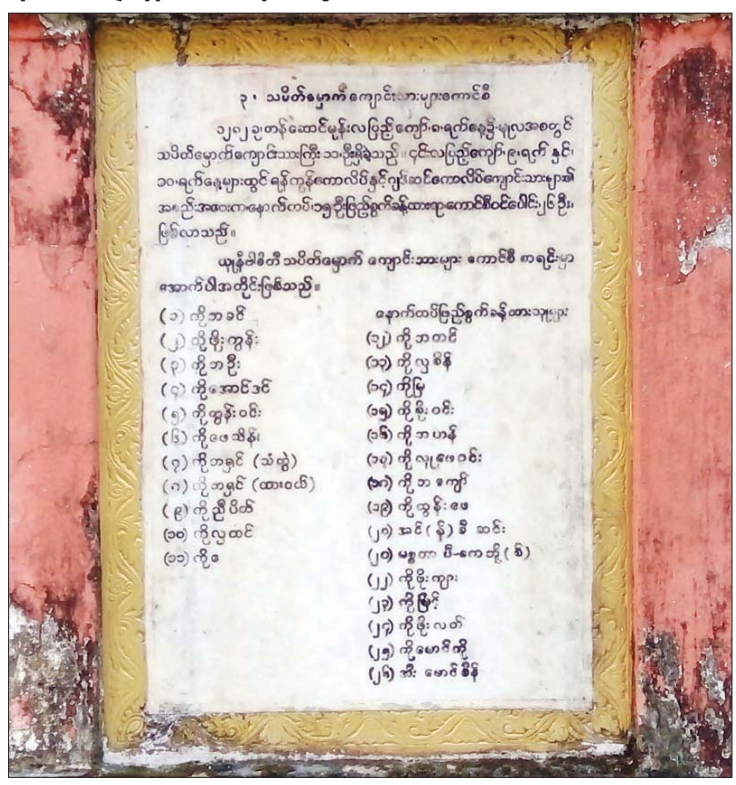 ၃။ သပိတ်မှောက်ကျောင်းသားများကောင်စီ
၁၂၈၂ ခု၊ တန်ဆောင်မုန်းလပြည့်ကျော် ၈ ရက်နေ့၌ မူလအစတွင်
သပိတ်မှောက်ကျောင်းသားကြီး ၁၁ ဦးရှိခဲ့သည်။ ၎င်းလပြည့်ကျော် ၉ ရက် နှင့်
၁၀ ရက်နေ့များတွင် ရန်ကုန်ကောလိပ်နှင့်ဂျပ်ဆင်ကောလိပ်ကျောင်းသားများ၏
အစည်းအဝေးက နောက်ထပ် ၁၅ ဦးဖြည့်စွက်ခန့်ထားရာ ကောင်စီဝင်ပေါင်း ၂၆ ဦး
ဖြစ်လာသည်။
ယူနီဗါစီတီ သပိတ်မှောက် ကျောင်းသားများ ကောင်စီ စာရင်းမှာ
အောက်ပါအတိုင်းဖြစ်သည်။
(၁) ကိုဘခင်
(၂) ကိုဖိုးကွန်း
(၃) ကိုဘဦး
(၄) ကိုအောင်ဒင်
(၅) ကိုထွန်းဝင်း
(၆) ကိုဖေသိန်း
(၇) ကိုဘရှင် (သံတွဲ)
(၈) ကိုဘရှင် (ထားဝယ်)
(၉) ကိုညီပိတ်
(၁၀) ကိုလှထင်
(၁၁) ကိုဖေ
နောက်ထပ်ဖြည့်စွက်ခန့်ထားသူများ
(၁၂) ကိုဘတင်
(၁၃) ကိုလှစိန်
(၁၄) ကိုမြ
(၁၅) ကိုစိုးဝင်း
(၁၆) ကိုဘဟန်
(၁၇) ကိုလူဖေဝင်း
(၁၈) ကိုဘကျော်
(၁၉) ကိုထွန်းဖေ
(၂၀) အင်(န်) စီ ဆင်း
(၂၁) မစ္စတာ ပီ-ကေဘို့(စ်)
(၂၂) ကိုဖိုးကျား
(၂၃) ကိုမြင့်
(၂၄) ကိုဖိုးလတ်
(၂၅) ကိုမောင်ကို
(၂၆) အီး မောင်စိန်